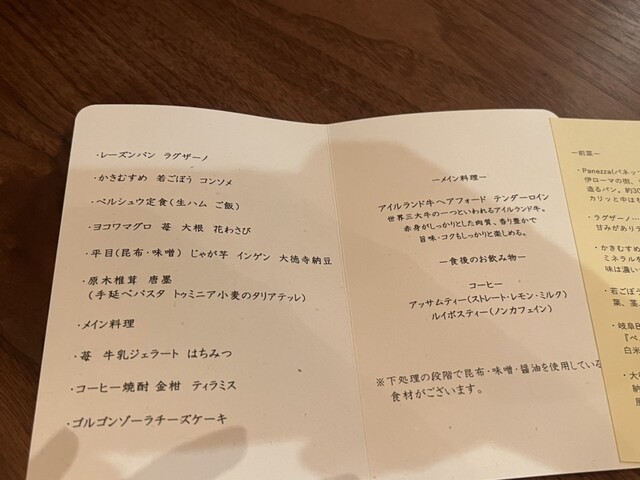 ・レーズンパン ラグザーノ
・かきむすめ 若ごぼう コンソメ
・ペルシュウ定食(生ハム ご飯)
・ヨコワマグロ 苺 大根 花わさび
・平目(昆布・味噌) じゃが芋 インゲン 大徳寺納豆
・原木椎茸 唐墨
(手延べパスタ トゥミニア小麦のタリアテッレ)
・メイン料理
・苺 牛乳ジェラート はちみつ
・コーヒー焼酎 金柑 ティラミス
・ゴルゴンゾーラチーズケーキ
ーメイン料理ー
アイルランド牛ヘアフォード テンダーロイン
世界三大牛の一つといわれるアイルランド牛。
赤身がしっかりとした肉質、香り豊かで
旨味・コクもしっかりと楽しめる。
ー食後のお飲み物ー
コーヒー
アッサムティー(ストレート・レモン・ミルク)
ルイボスティー(ノンカフェイン)
※下処理の段階で昆布・味噌・醤油を使用している
食材がございます。
ー前菜ー
・Panezza(パネッ
伊ローマの街、
造るパン。約30
カリッと中は
・ラグザーノ…
甘みがあり
・かきむすめ
ミネラルを
味は濃い
・若ごぼう
葉、茎、
・岐阜
『ペ
白米
・大
納